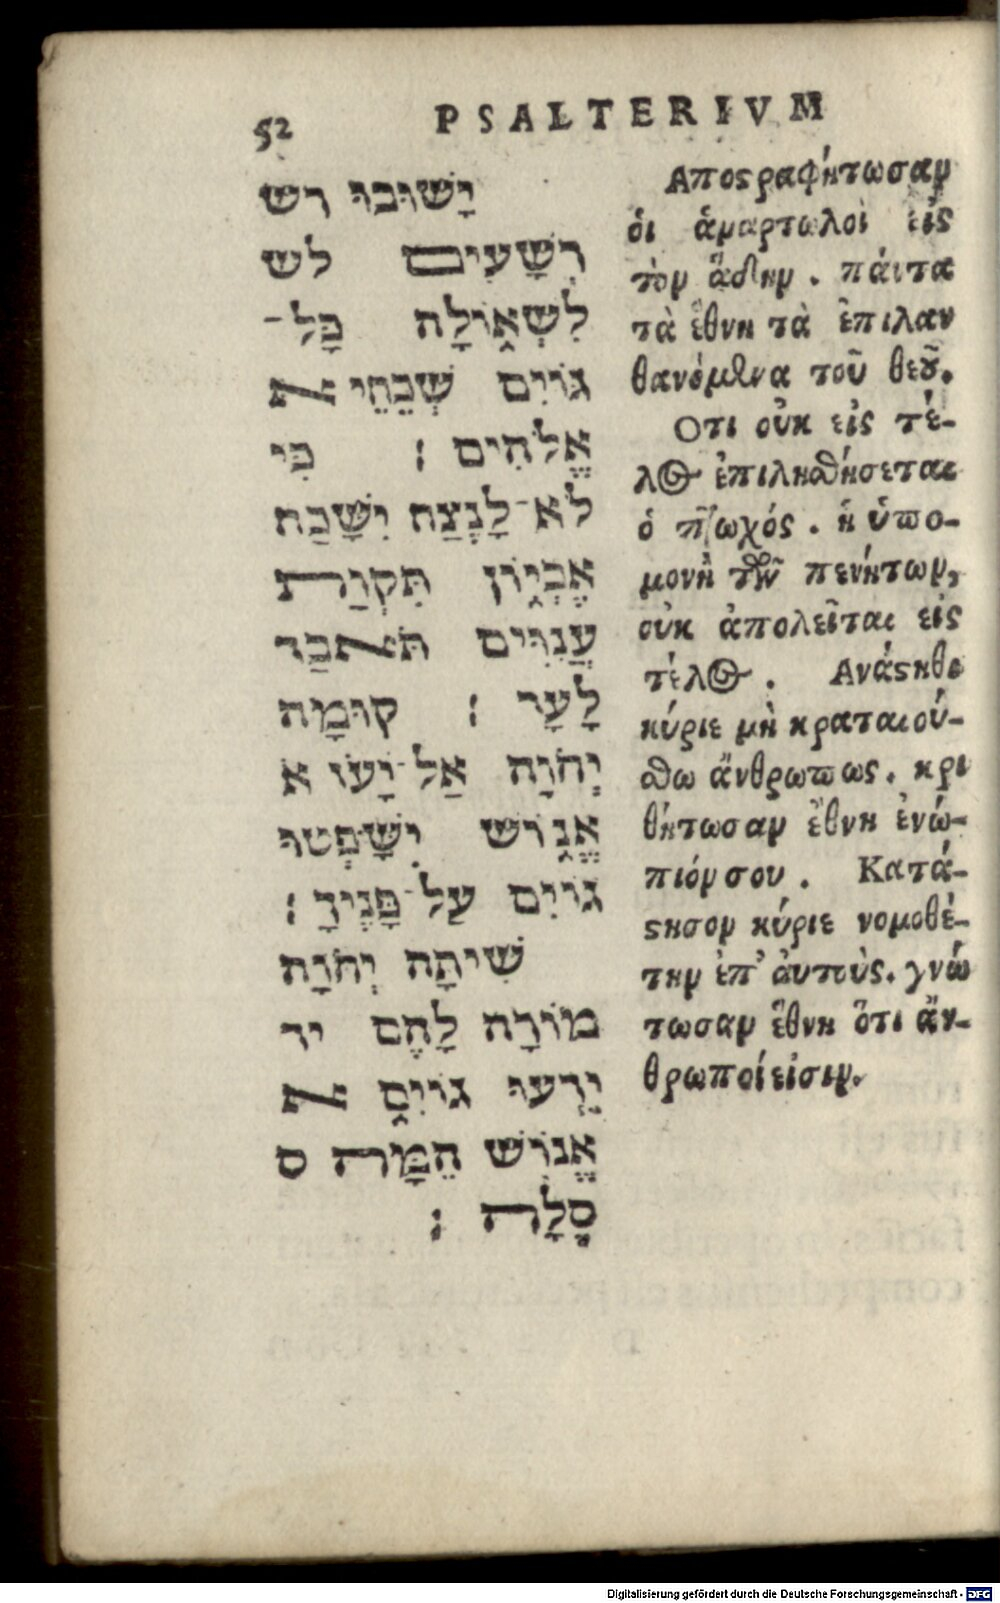 52 PSALTERIVM
יָשׁוּבוּ רש
רְשָׁעִים לש
לִשְׁאוֹלָה כָּל־
גּוֹיִם שְׁכֵחֵי א
אֱלֹהִים׃ כִּי
לֹא־לָנֶצַח יִשָּׁכַח
אֶבְיוֹן תִּקְוַת
עֲנִוִּים תֹּאבַד
לָעָד׃ קוּמָה
יְהֹוָה אַל־יָעֹז א
אֱנוֹשׁ יִשָּׁפְטוּ
גוֹיִם עַל־פָּנֶיךָ׃
שִׁיתָה יְהֹוָה
מוֹרָה לָהֶם יד
יֵדְעוּ גוֹיִם א
אֱנוֹשׁ הֵמָּה ס
סֶלָה׃
Αποϛραφήτωσαν
ὁι ἁμαρτωλοὶ εἰς
τὸν ἅδην. πάντα
τὰ ἔθνη τὰ ἐπιλαν
θανόμενα τοῦ θεοῦ.
Οτι οὐκ εἰς τέ-
λος ἐπιληθήσεται
ὁ πτωχός. ἡ ὑπο-
μονὴ τῶν πενήτων,
οὐκ ἀπολεῖται εἰς
τέλος. Ανάϛηθι
κύριε μὴ κραταιού-
θω ἄνθρωπως. κρι
θήτωσαν ἔθνη ἐνώ-
πιόν σου. Κατά-
ϛησον κύριε νομοθέ-
την ἐπ' ἀυτοὺς. γνώ
τωσαν ἔθνη ὅτι ἄν-
θρωποί εἰσιν.
Digitalisierung gefördert durch die Deutsche Forschungsgemeinschaft - DFG